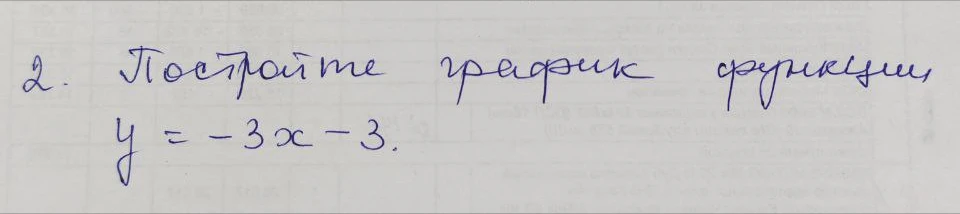 2. Постройте график функции
y = -3x - 3.